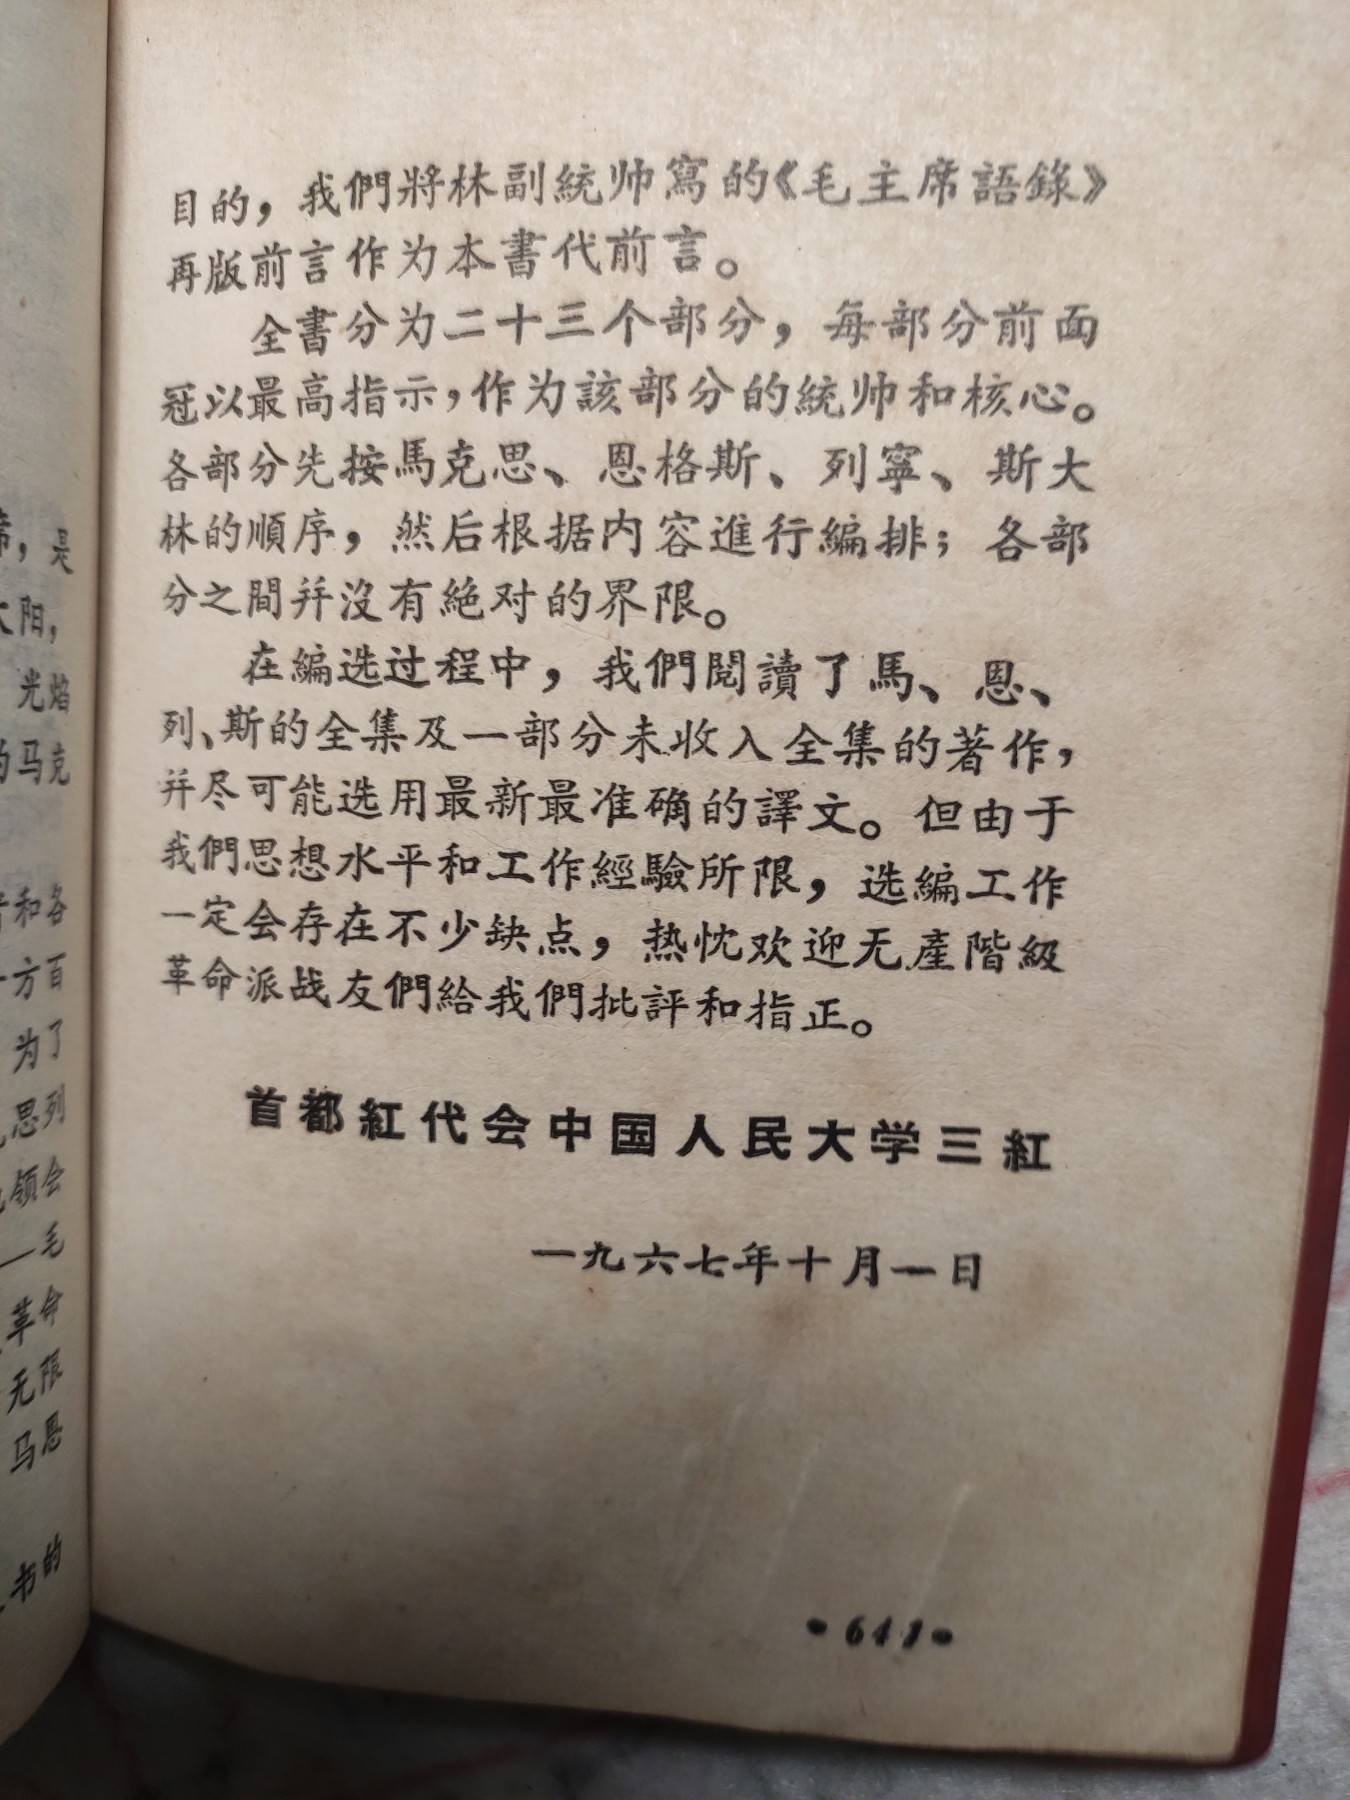 席，是
太阳，
光焰
的马克
和各
方百
为了
思列
领会
——毛
革命
无限
马恩
书的
目的，我們將林副統帅寫的《毛主席語錄》
再版前言作为本書代前言。
全書分为二十三个部分，每部分前面
冠以最高指示，作为該部分的統帅和核心。
各部分先按馬克思、恩格斯、列寧、斯大
林的順序，然后根据内容進行編排；各部
分之間并沒有絶对的界限。
在編选过程中，我們閱讀了馬、恩、
列、斯的全集及一部分未收入全集的著作，
并尽可能选用最新最准确的譯文。但由于
我們思想水平和工作經驗所限，选編工作
一定会存在不少缺点，热忱欢迎无產階級
革命派战友們給我們批評和指正。
首都紅代会中国人民大学三紅
一九六七年十月一日
•641•